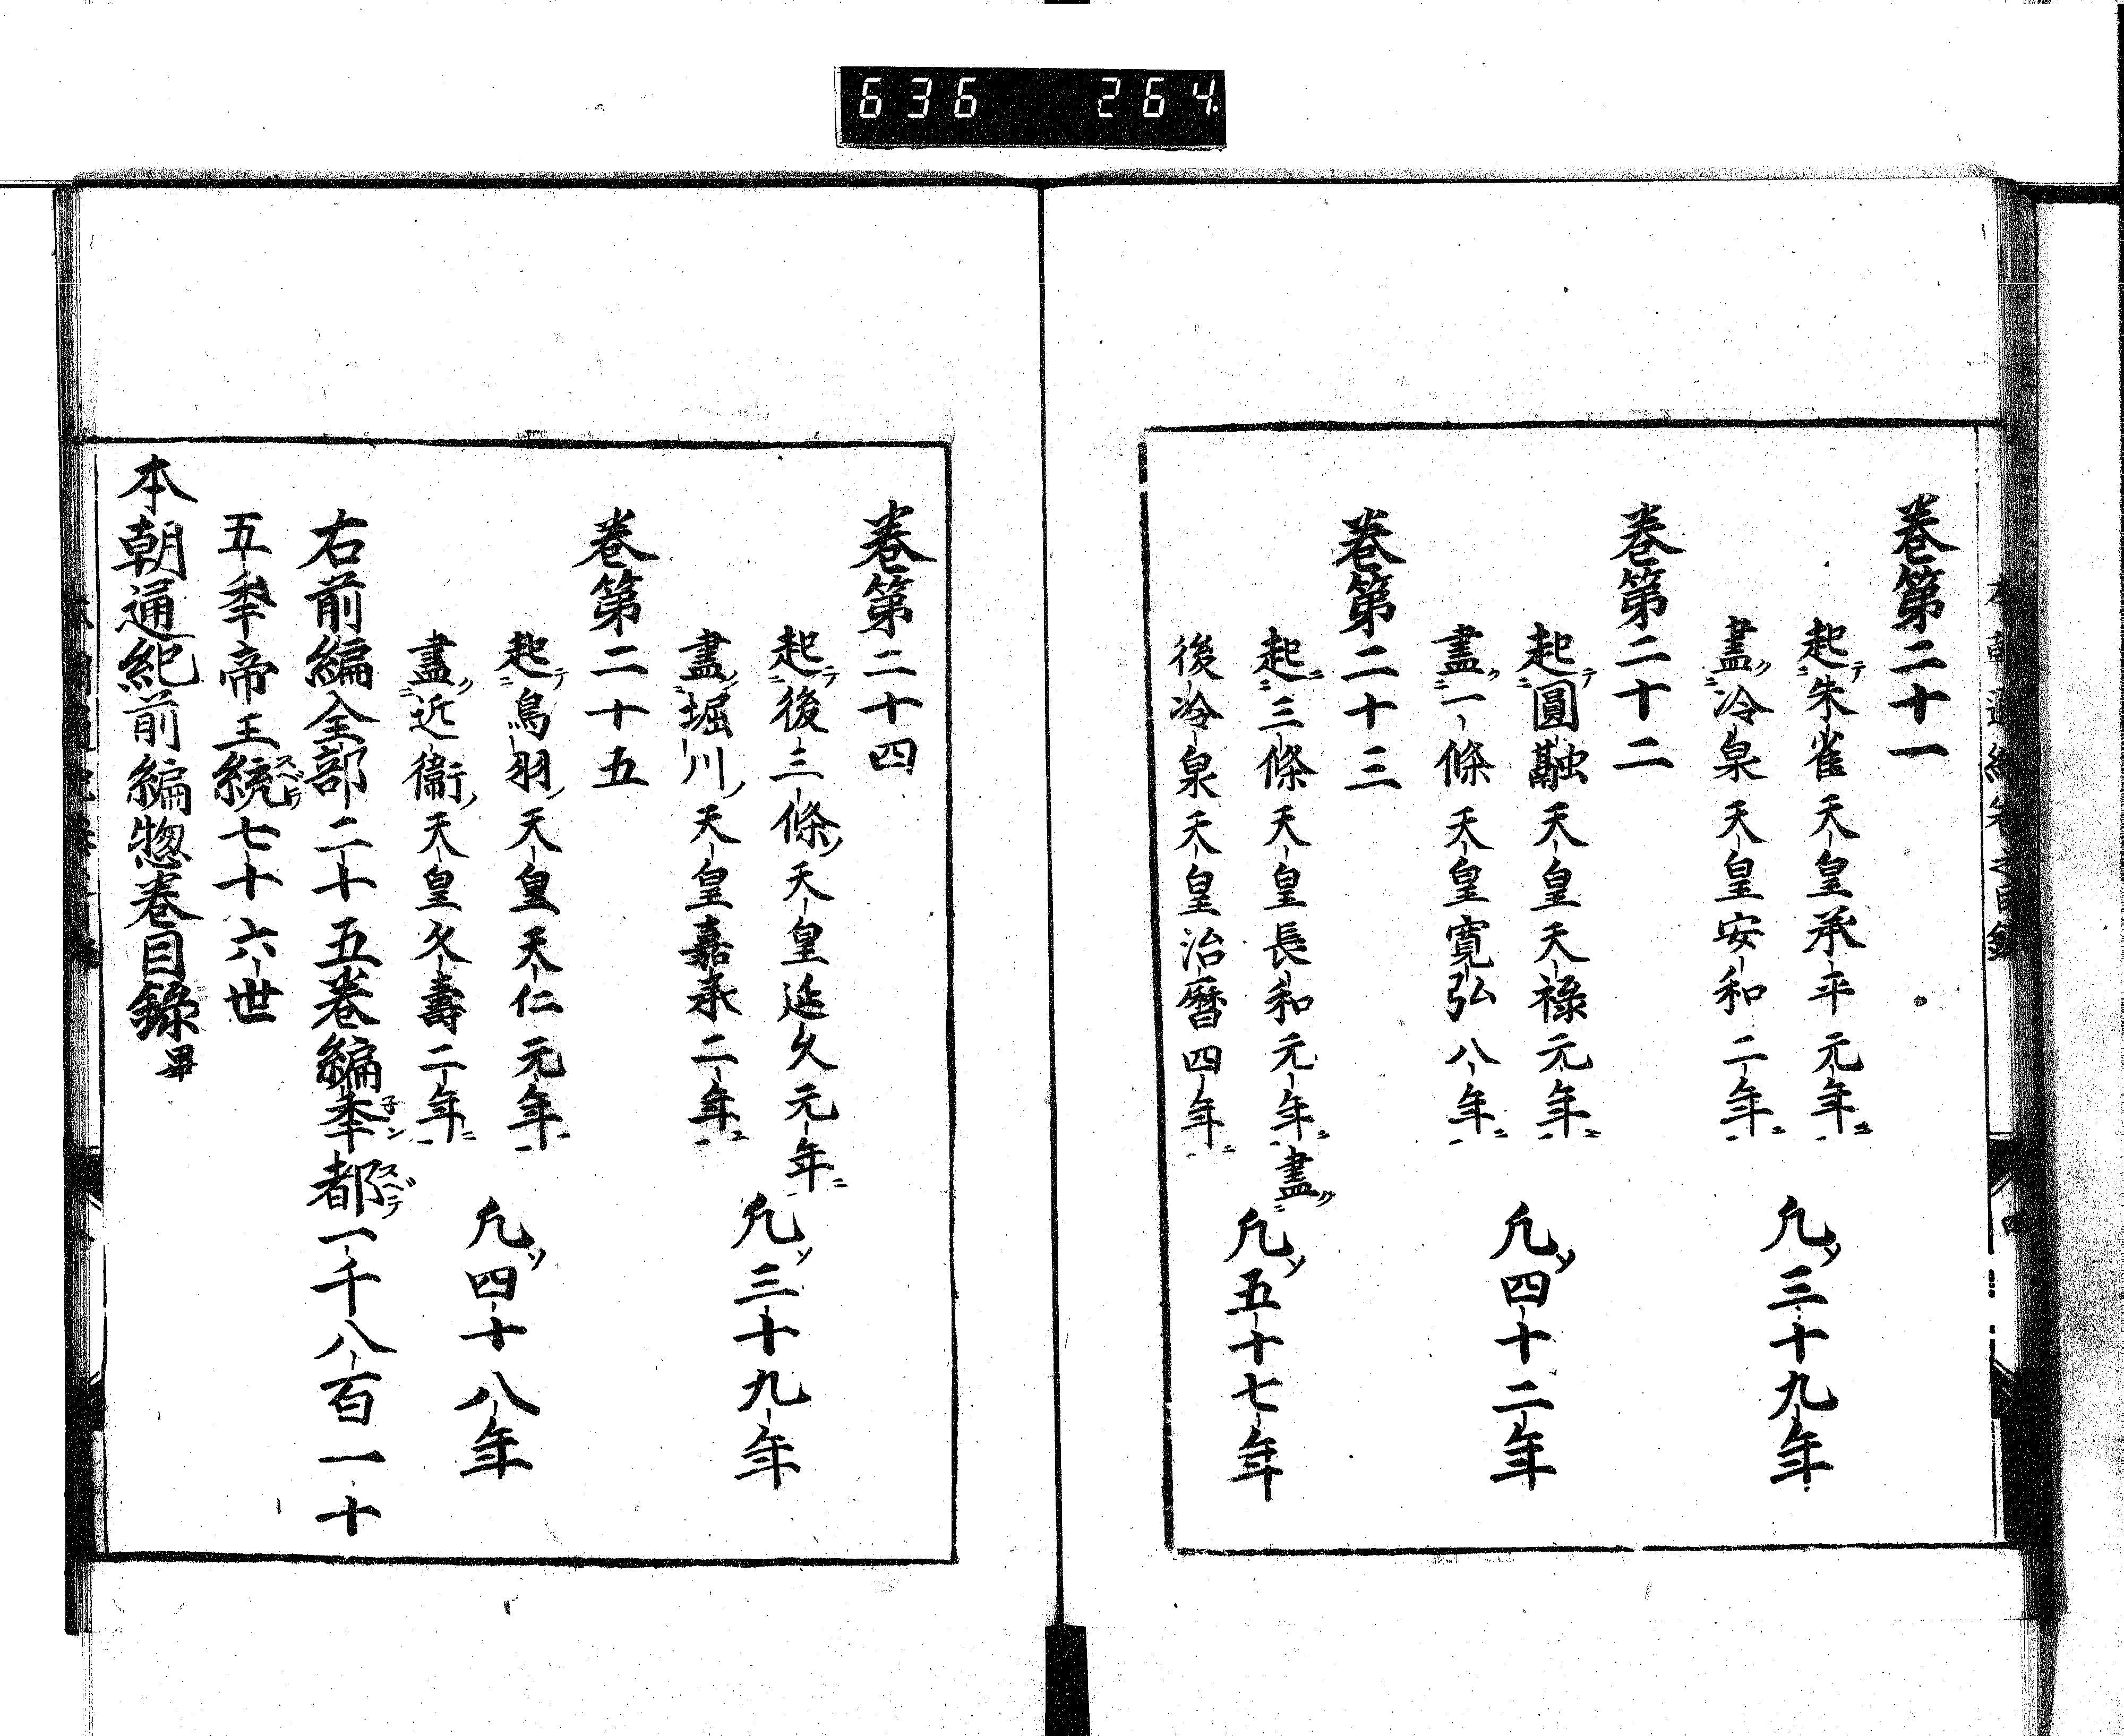 636 264
卷第二十一
起朱雀天皇承平元年
盡冷泉天皇安和二年
凢三十九年
卷第二十二
起圓融天皇天祿元年
盡一條天皇寛弘八年
凢四十二年
卷第二十三
起三條天皇長和元年盡
後冷泉天皇治曆四年
凢五十七年
卷第二十四
起後三條天皇延久元年
盡堀川天皇嘉承二年
凢三十九年
卷第二十五
起鳥羽天皇天仁元年
盡近衞天皇久壽二年
凢四十八年
右前編全部二十五卷編秊都一千八百一十
五秊帝王統七十六世
本朝通紀前編惣卷目錄畢